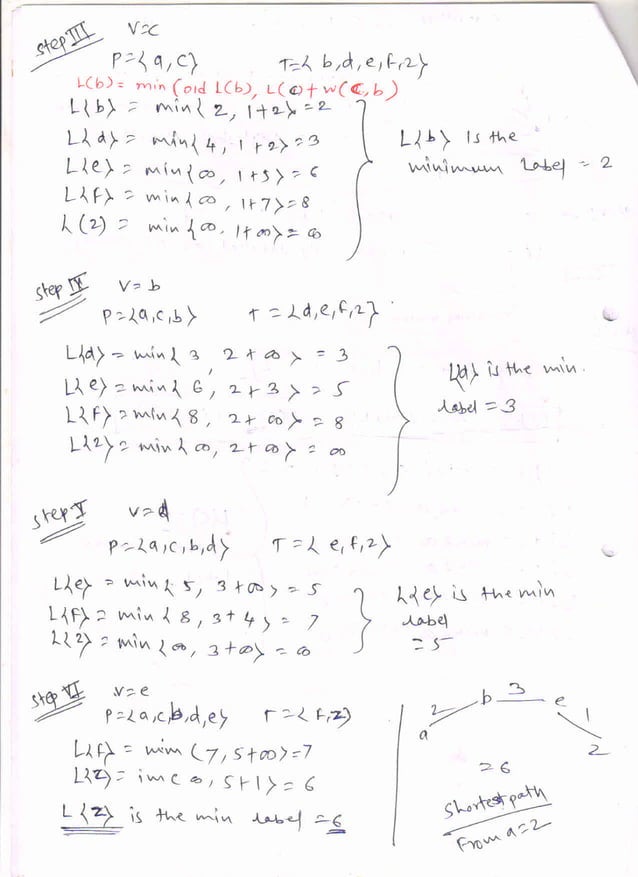 Step III V=c
P={a,c} T={b,d,e,f,z}
L(b) = min(old L(b), L(c)+w(c,b)
L{b} = min{2, 1+2}=2
L{d} = min{4, 1+2}=3
L{e} = min{∞, 1+5}=6
L{f} = min{∞, 1+7}=8
L(z) = min{∞, 1+∞}=∞
L{b} is the
minimum label = 2
Step IV V=b
P={a,c,b} T={d,e,f,z}
L{d} = min{3, 2+∞} = 3
L{e} = min{6, 2+3} = 5
L{f} = min{8, 2+∞} = 8
L{z} = min{∞, 2+∞} = ∞
L{d} is the min.
label = 3
Step V V=d
P={a,c,b,d} T={e,f,z}
L{e} = min{5, 3+∞} = 5
L{f} = min{8, 3+4} = 7
L{z} = min{∞, 3+∞} = ∞
L{e} is the min
label
=5
Step VI V=e
P={a,c,b,d,e} T={f,z}
L{f} = min(7, 5+∞)=7
L{z} = im{∞, 5+1}=6
L{z} is the min label =6
a 2 b 3 e 1 z
=6
Shortest path
From a=z